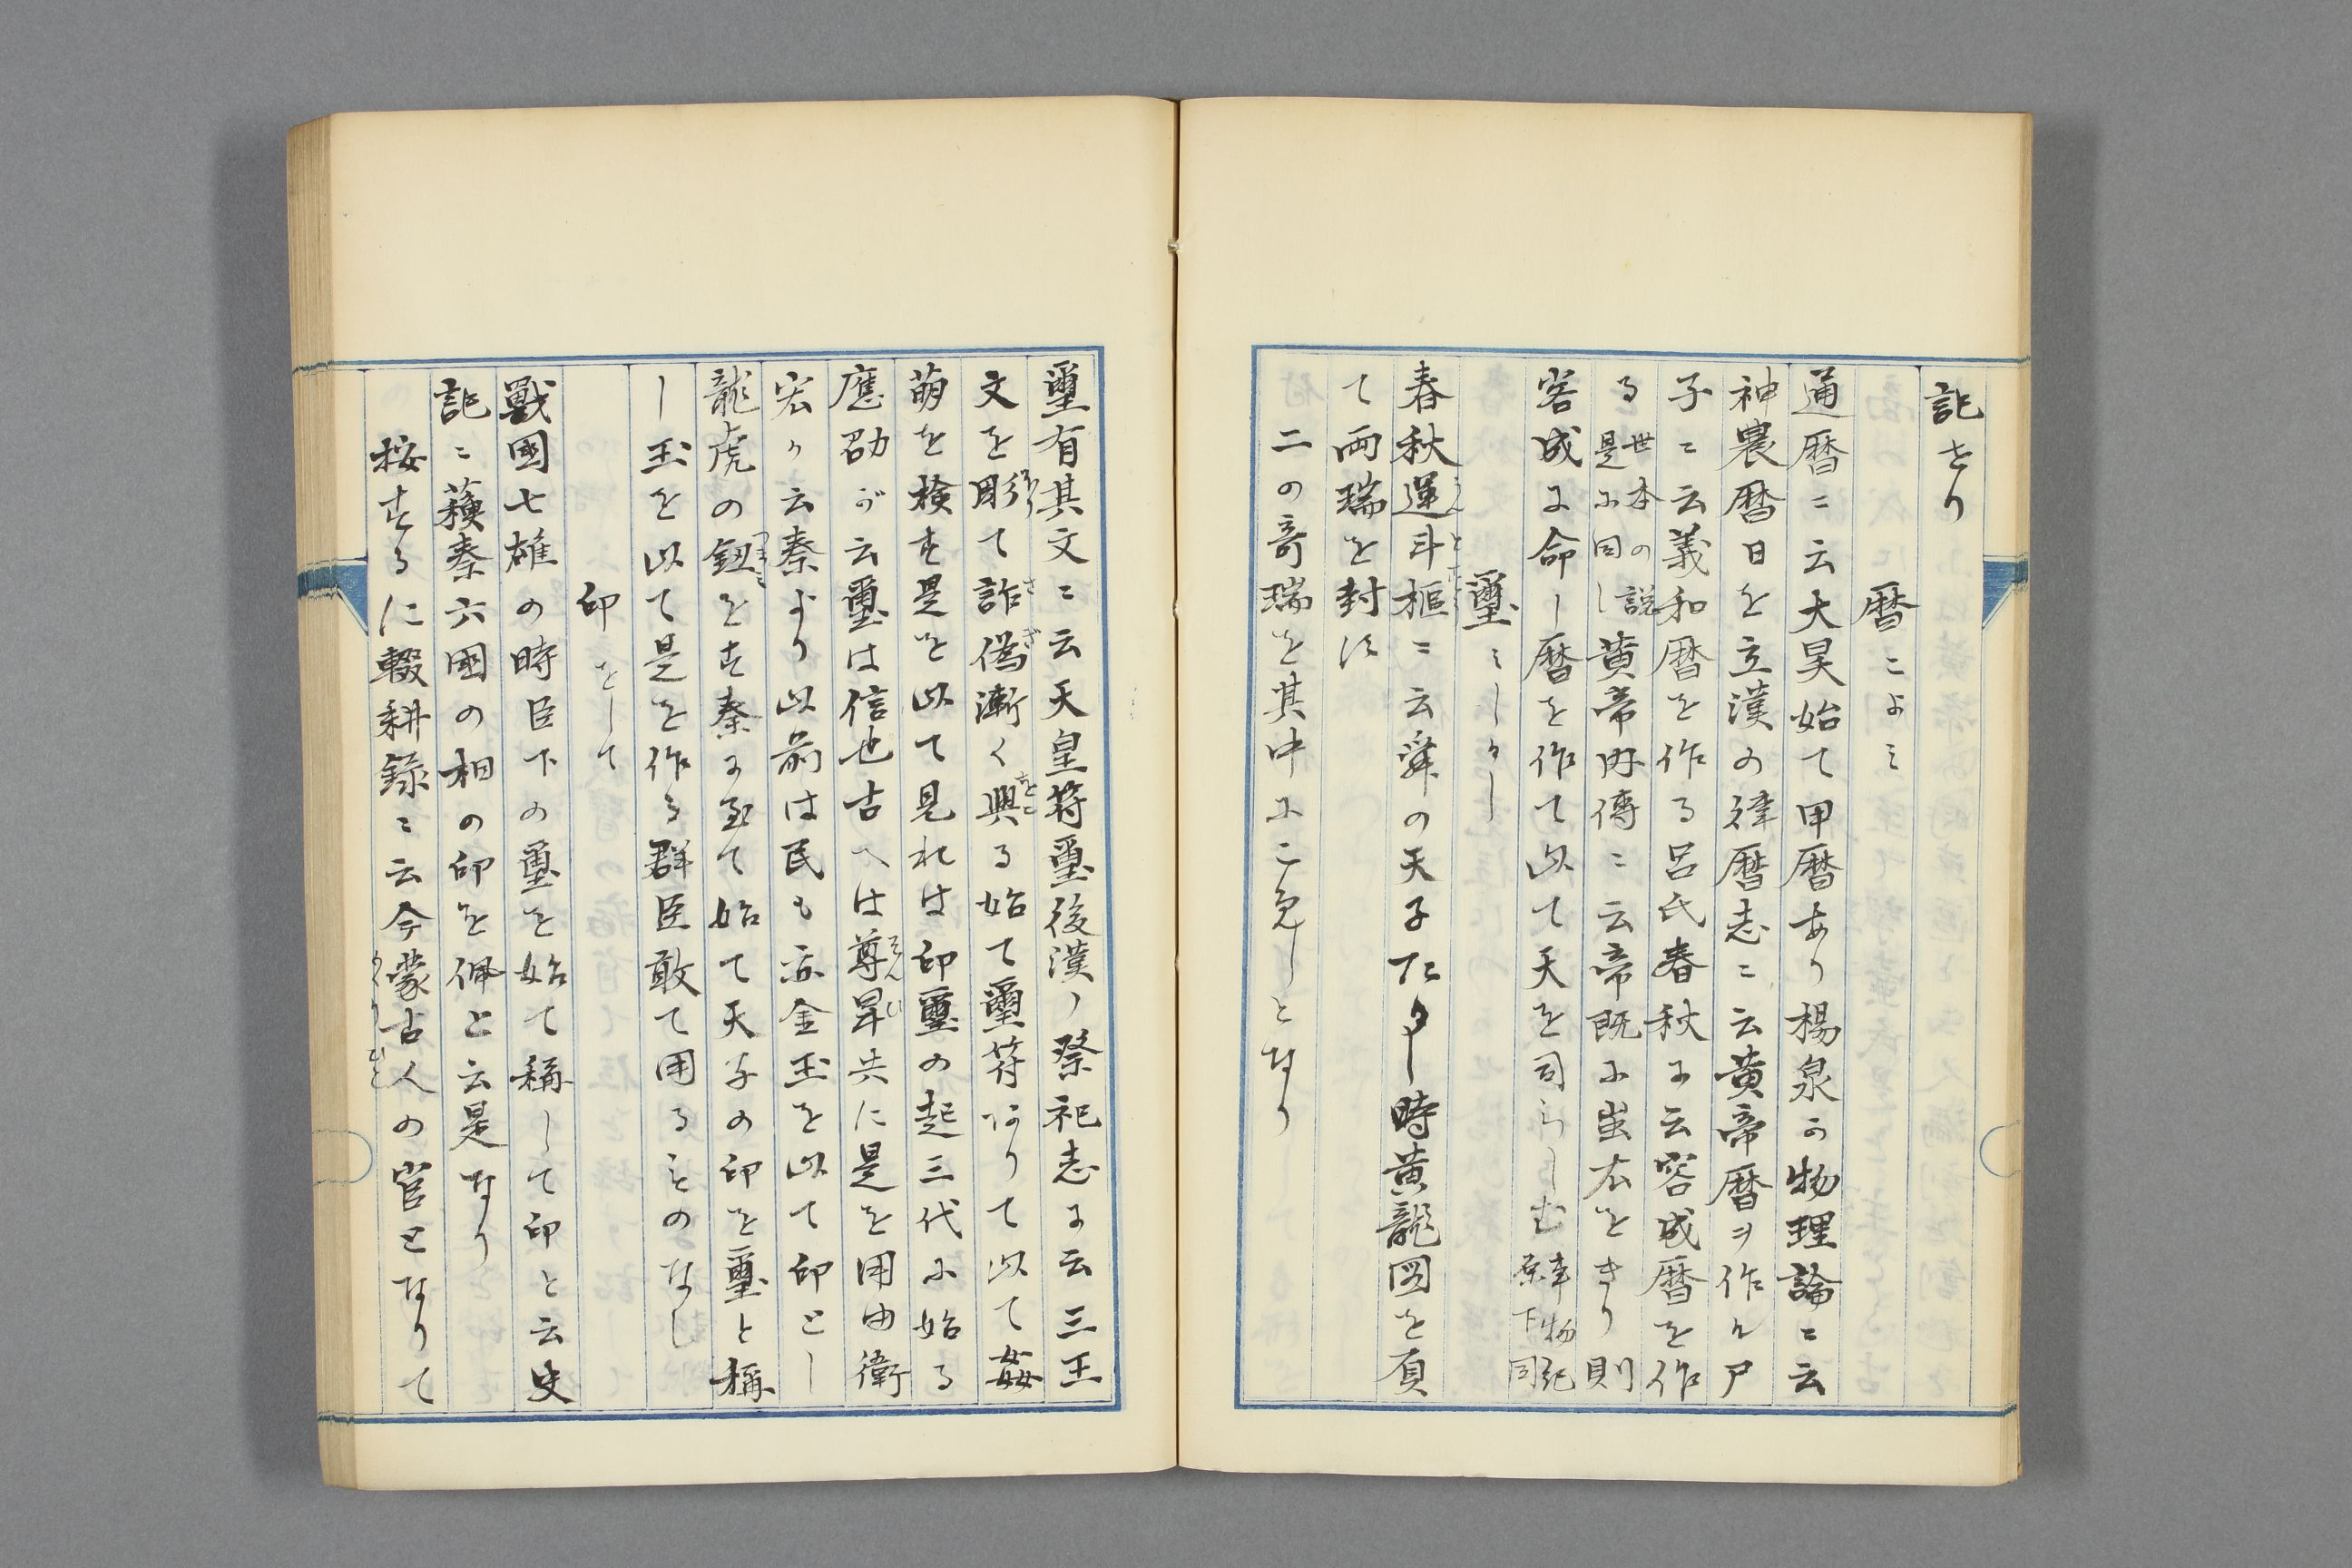 記せり
暦 こよミ
通暦ニ云大昊始て甲暦あり楊泉の物理論ニ云
神農暦日を立漢の律暦志ニ云黄帝暦ヲ作ル尸
子ニ云義和暦を作る呂氏春秋に云容成暦を作
る 世本の説是に同し 黄帝内傳ニ云帝既に蚩尤をきり則
容成に命し暦を作て以て天を司らしむ 事物紀原下同
璽 ミしるし
春秋運斗樞ニ云舜の天子たりし時黄龍図を負
て両瑞を封す
二の奇瑞を其中にこめしとなり
璽有其文ニ云天皇符璽後漢ノ祭祀志に云三王
文を彫て詐偽漸く興る始て璽符ありて以て姦
萌を検す是を以て見れは印璽の起三代に始る
應劭が云璽は信也古へは尊卑共に是を用由衛
宏か云秦より以前は民も亦金玉を以て印とし
龍虎の鈕をす秦に至て始て天子の印を璽と稱
し玉を以て是を作る群臣敢て用るものなし
印 をして
戰國七雄の時臣下の璽を始て稱して印と云史
記ニ蘓秦六國の相の印を佩と云是なり
按するに輟耕録ニ云今蒙古人の官となりて